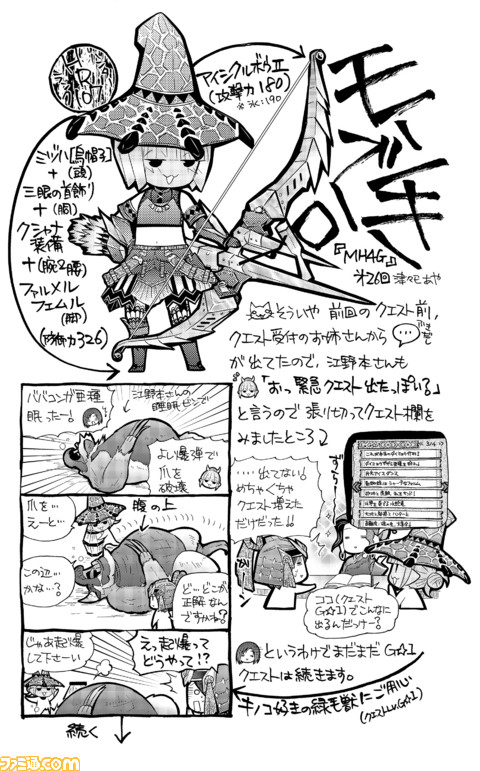 モン
ハン
『MH4G』
オ26回 津々巳あや
アイシクルボウⅡ
(攻撃力180)
※氷:190
ミヅハ【烏帽子】
+(頭)
三眼の首飾り
+(胴)
クシャナ
装備
+(腕&腰)
ファルメル
フェムル
(脚)
(防御力326)
そういや 前回のクエスト前、
クエスト受付のお姉さんから
が出てたので、江野本さんも
「おっ緊急クエスト出たっぽいる」
と言うので張り切ってクエスト欄を
みましたところ♪
ババコンガ亜種
眠ったー!
江野本さんの
睡眠ビンで!
よし爆弾で
爪を
破壊
爪を…
えーと…
腹の上
この辺…
かな…?
ど…どこが
正解なん
ですかね?
じゃあ起爆
して下さーい
えっ起爆って
どうやって!?
続く
‥‥出てない!
めちゃくちゃ
クエスト増えた
だけだった!!
ずらー
ココ(クエスト
G☆1)でこんなに
出るんだっけー?
というわけでまだまだG☆1
クエストは続きます。
キノコ好きの緑毛獣にご用心
(クエストLv.G☆1)
ファミ通.com